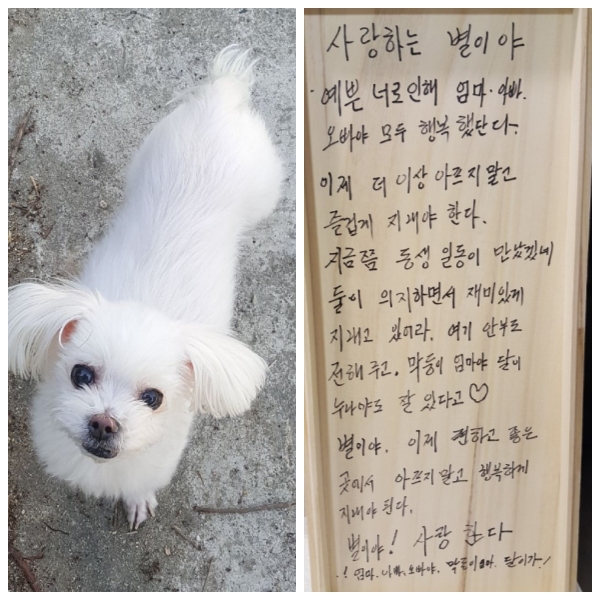 사랑하는 별이야
예쁜 너로인해 엄마.아빠.
오빠야 모두 행복했단다.
이제 더이상 아프지말고
즐겁게 지내야 한다.
지금쯤 동생 일동이 만났겠네
둘이 의지하면서 재미있게
지내고 있어라. 여기 안부도
전해주고. 막둥이 엄마야 달이
누나야도 잘 있다고♡
별이야. 이제 편하고 좋은
곳에서 아프지말고 행복하게
지내야 된다.
별이야! 사랑한다
! 엄마. 아빠. 오빠야. 막둥이 달이가!